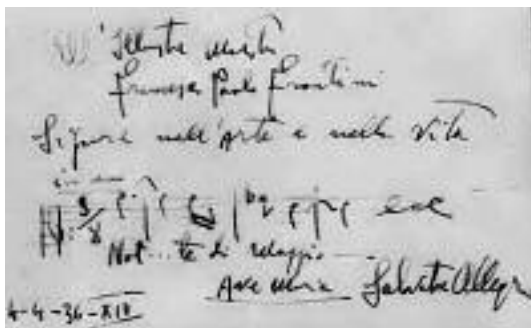 All' Illustre Maestro
Francesco Paolo Frontini
Signore nell'Arte e nella Vita
9/8
Not...te di
Ave Maria Salvatore Allegra
4-4-36-XIV